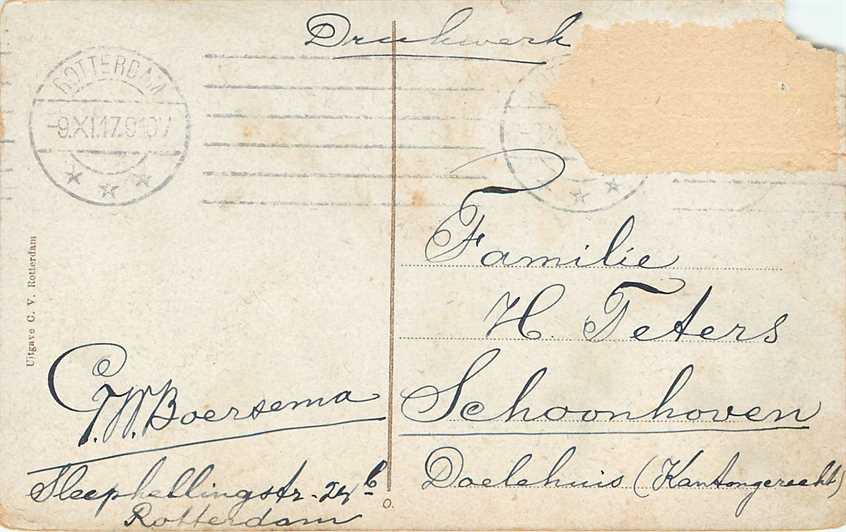 Drukwerk
ROTTERDAM
-9.XI.17.9
Uitgave C. V. Rotterdam
Familie
H. Teters
Schoonhoven
Doelehuis (Kantongerecht)
G.W. Boersema
Sleephellingstr.
Rotterdam
O.